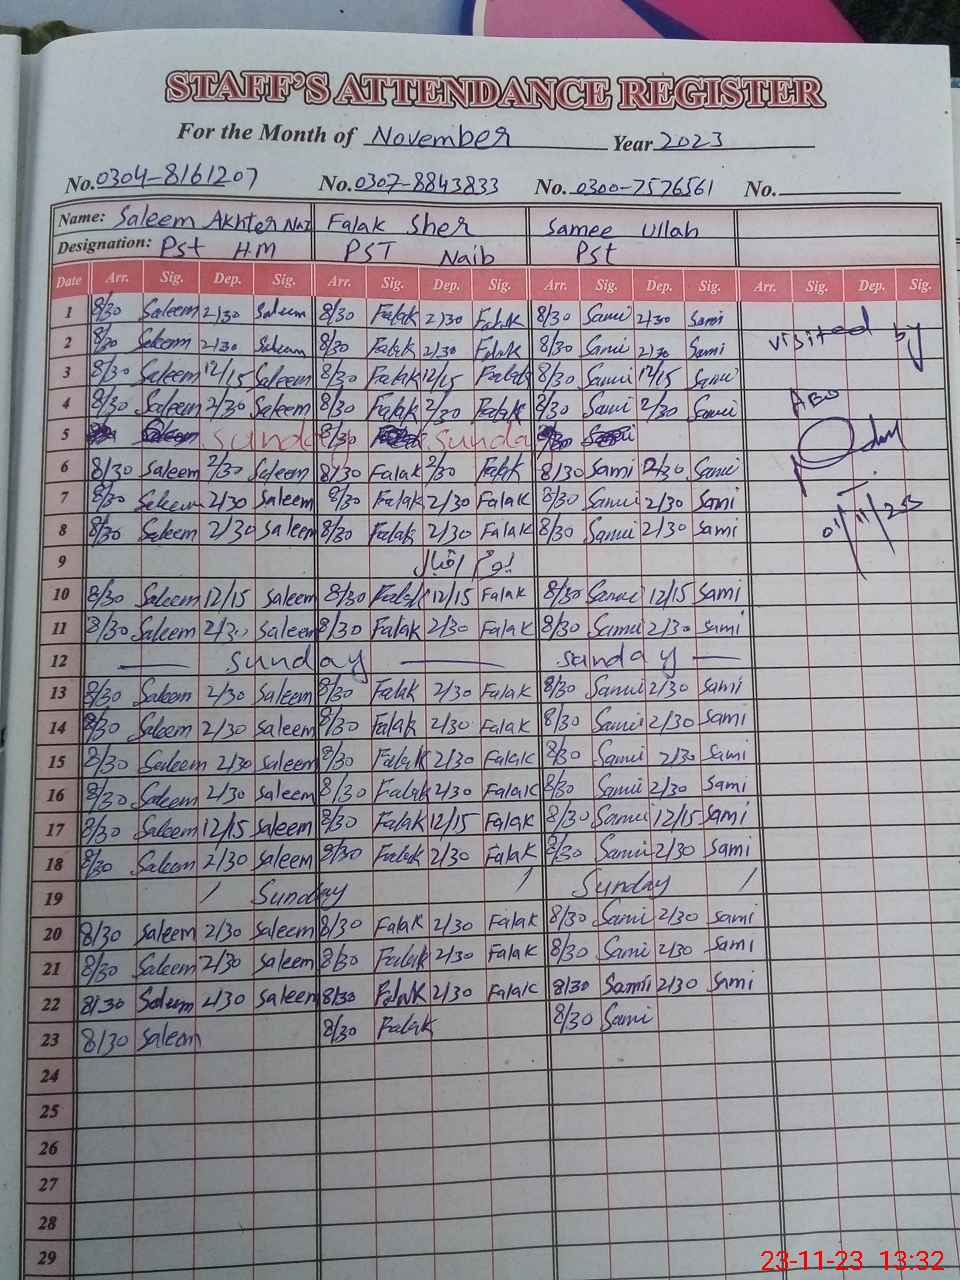 STAFF'S ATTENDANCE REGISTER
For the Month of November Year 2023
No. 0304-8161207 No. 0307-8843833 No. 0300-7576561 No.
Name: Saleem Akhter Naz Falak Sher Samee Ullah
Designation: Pst HM PST Naib Pst
Date Arr. Sig. Dep. Sig. Arr. Sig. Dep. Sig. Arr. Sig. Dep. Sig. Arr. Sig. Dep. Sig.
1 8/30 Saleem 2/30 Saleem 8/30 Falak 2/30 Falak 8/30 Sami 2/30 Sami
2 8/30 Saleem 2/30 Saleem 8/30 Falak 2/30 Falak 8/30 Sami 2/30 Sami visited by
3 8/30 Saleem 12/15 Saleem 8/30 Falak 12/15 Falak 8/30 Sami 12/15 Sami
4 8/30 Saleem 2/30 Saleem 8/30 Falak 2/30 Falak 8/30 Sami 2/30 Sami
5 sunday 8/30 sunda
6 8/30 Saleem 2/30 Saleem 8/30 Falak 2/30 Falak 8/30 Sami 2/30 Sami
7 8/30 Saleem 2/30 Saleem 8/30 Falak 2/30 Falak 8/30 Sami 2/30 Sami
8 8/30 Saleem 2/30 Saleem 8/30 Falak 2/30 Falak 8/30 Sami 2/30 Sami
9 یوم اقبال
10 8/30 Saleem 12/15 Saleem 8/30 Falak 12/15 Falak 8/30 Sami 12/15 Sami
11 8/30 Saleem 2/30 Saleem 8/30 Falak 2/30 Falak 8/30 Sami 2/30 Sami
12 sunday sunday
13 8/30 Saleem 2/30 Saleem 8/30 Falak 2/30 Falak 8/30 Sami 2/30 Sami
14 8/30 Saleem 2/30 Saleem 8/30 Falak 2/30 Falak 8/30 Sami 2/30 Sami
15 8/30 Saleem 2/30 Saleem 8/30 Falak 2/30 Falak 8/30 Sami 2/30 Sami
16 8/30 Saleem 2/30 Saleem 8/30 Falak 2/30 Falak 8/30 Sami 2/30 Sami
17 8/30 Saleem 12/15 Saleem 8/30 Falak 12/15 Falak 8/30 Sami 12/15 Sami
18 8/30 Saleem 2/30 Saleem 8/30 Falak 2/30 Falak 8/30 Sami 2/30 Sami
19 Sunday Sunday
20 8/30 Saleem 2/30 Saleem 8/30 Falak 2/30 Falak 8/30 Sami 2/30 Sami
21 8/30 Saleem 2/30 Saleem 8/30 Falak 2/30 Falak 8/30 Sami 2/30 Sami
22 8/30 Saleem 2/30 Saleem 8/30 Falak 2/30 Falak 8/30 Sami 2/30 Sami
23 8/30 Saleem 8/30 Falak 8/30 Sami
24
25
26
27
28
29
23-11-23 13:32